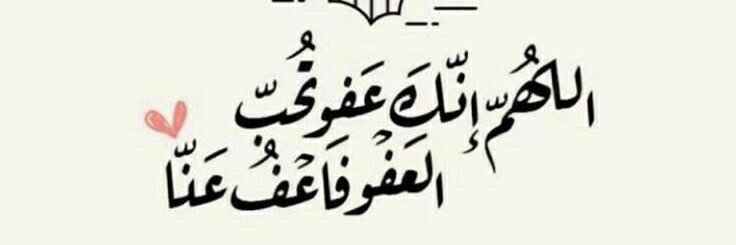 اللهُمّ إنّكَ عَفو تُحبّ
العَفْو فَاعْفُ عَنّا